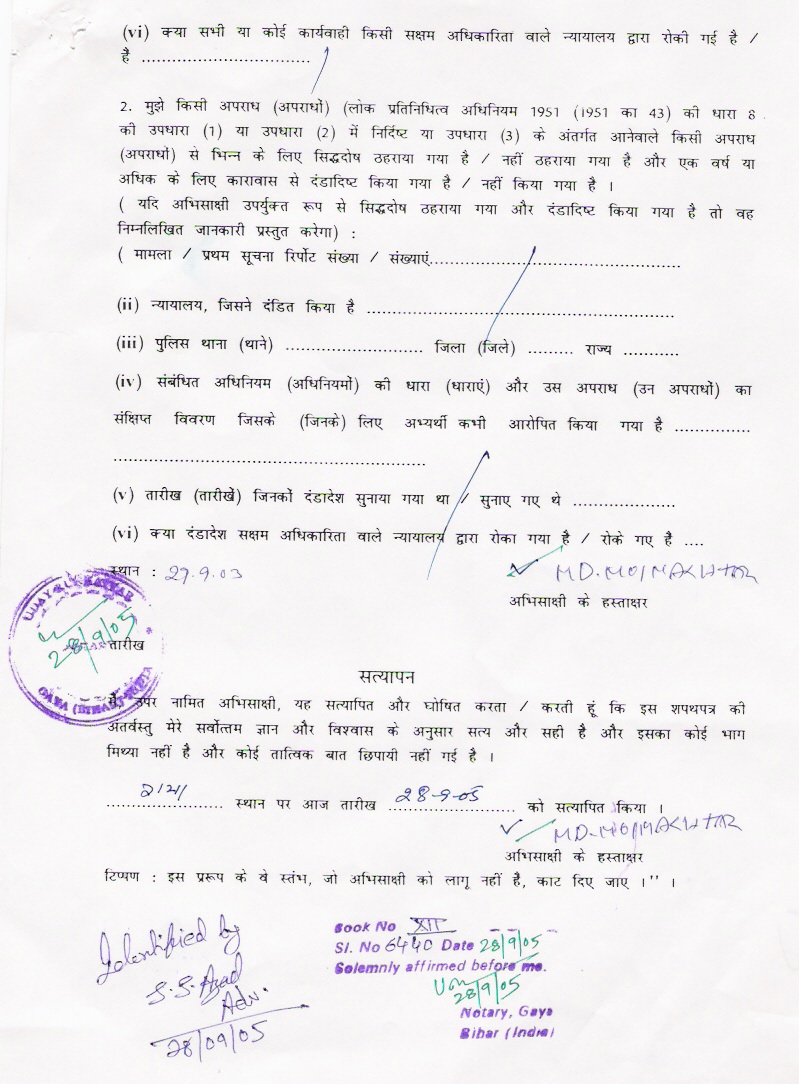 (vi) क्या सभी या कोई कार्यवाही किसी सक्षम अधिकारिता वाले न्यायालय द्वारा रोकी गई है /
है ................................
2. मुझे किसी अपराध (अपराधों) (लोक प्रतिनिधित्व अधिनियम 1951 (1951 का 43) की धारा 8
की उपधारा (1) या उपधारा (2) में निर्दिष्ट या उपधारा (3) के अंतर्गत आनेवाले किसी अपराध
(अपराधों) से भिन्न के लिए सिद्धदोष ठहराया गया है / नहीं ठहराया गया है और एक वर्ष या
अधिक के लिए कारावास से दंडादिष्ट किया गया है / नहीं किया गया है ।
( यदि अभिसाक्षी उपर्युक्त रूप से सिद्धदोष ठहराया गया और दंडादिष्ट किया गया है तो वह
निम्नलिखित जानकारी प्रस्तुत करेगा) :
( मामला / प्रथम सूचना रिर्पोट संख्या / संख्याएं...............................................
(ii) न्यायालय, जिसने दंडित किया है ..........................................................
(iii) पुलिस थाना (थाने) .......................... जिला (जिले) ......... राज्य ...........
(iv) संबंधित अधिनियम (अधिनियमों) की धारा (धाराएं) और उस अपराध (उन अपराधों) का
संक्षिप्त विवरण जिसके (जिनके) लिए अभ्यर्थी कभी आरोपित किया गया है ...............
...........................................................
(v) तारीख (तारीखें) जिनकों दंडादेश सुनाया गया था / सुनाए गए थे ....................
(vi) क्या दंडादेश सक्षम अधिकारिता वाले न्यायालय द्वारा रोका गया है / रोके गए है ....
स्थान : 29.9.03
MD. MOJMAKHTAR
अभिसाक्षी के हस्ताक्षर
28/9/05
तारीख
सत्यापन
मैं, उपर नामित अभिसाक्षी, यह सत्यापित और घोषित करता / करती हूं कि इस शपथपत्र की
अंतर्वस्तु मेरे सर्वोत्तम ज्ञान और विश्वास के अनुसार सत्य और सही है और इसका कोई भाग
मिथ्या नहीं है और कोई तात्विक बात छिपायी नहीं गई है ।
...................... स्थान पर आज तारीख 28-9-05 को सत्यापित किया ।
MD. MOJMAKHTAR
अभिसाक्षी के हस्ताक्षर
टिप्पण : इस प्ररूप के वे स्तंभ, जो अभिसाक्षी को लागू नहीं है, काट दिए जाए ।'' ।
Identified by
S.S. Azad
Adv.
28/09/05
Book No XII
Sl. No 6440 Date 28/9/05
Solemnly affirmed before me.
28/9/05
Notary, Gaya
Bihar (India)